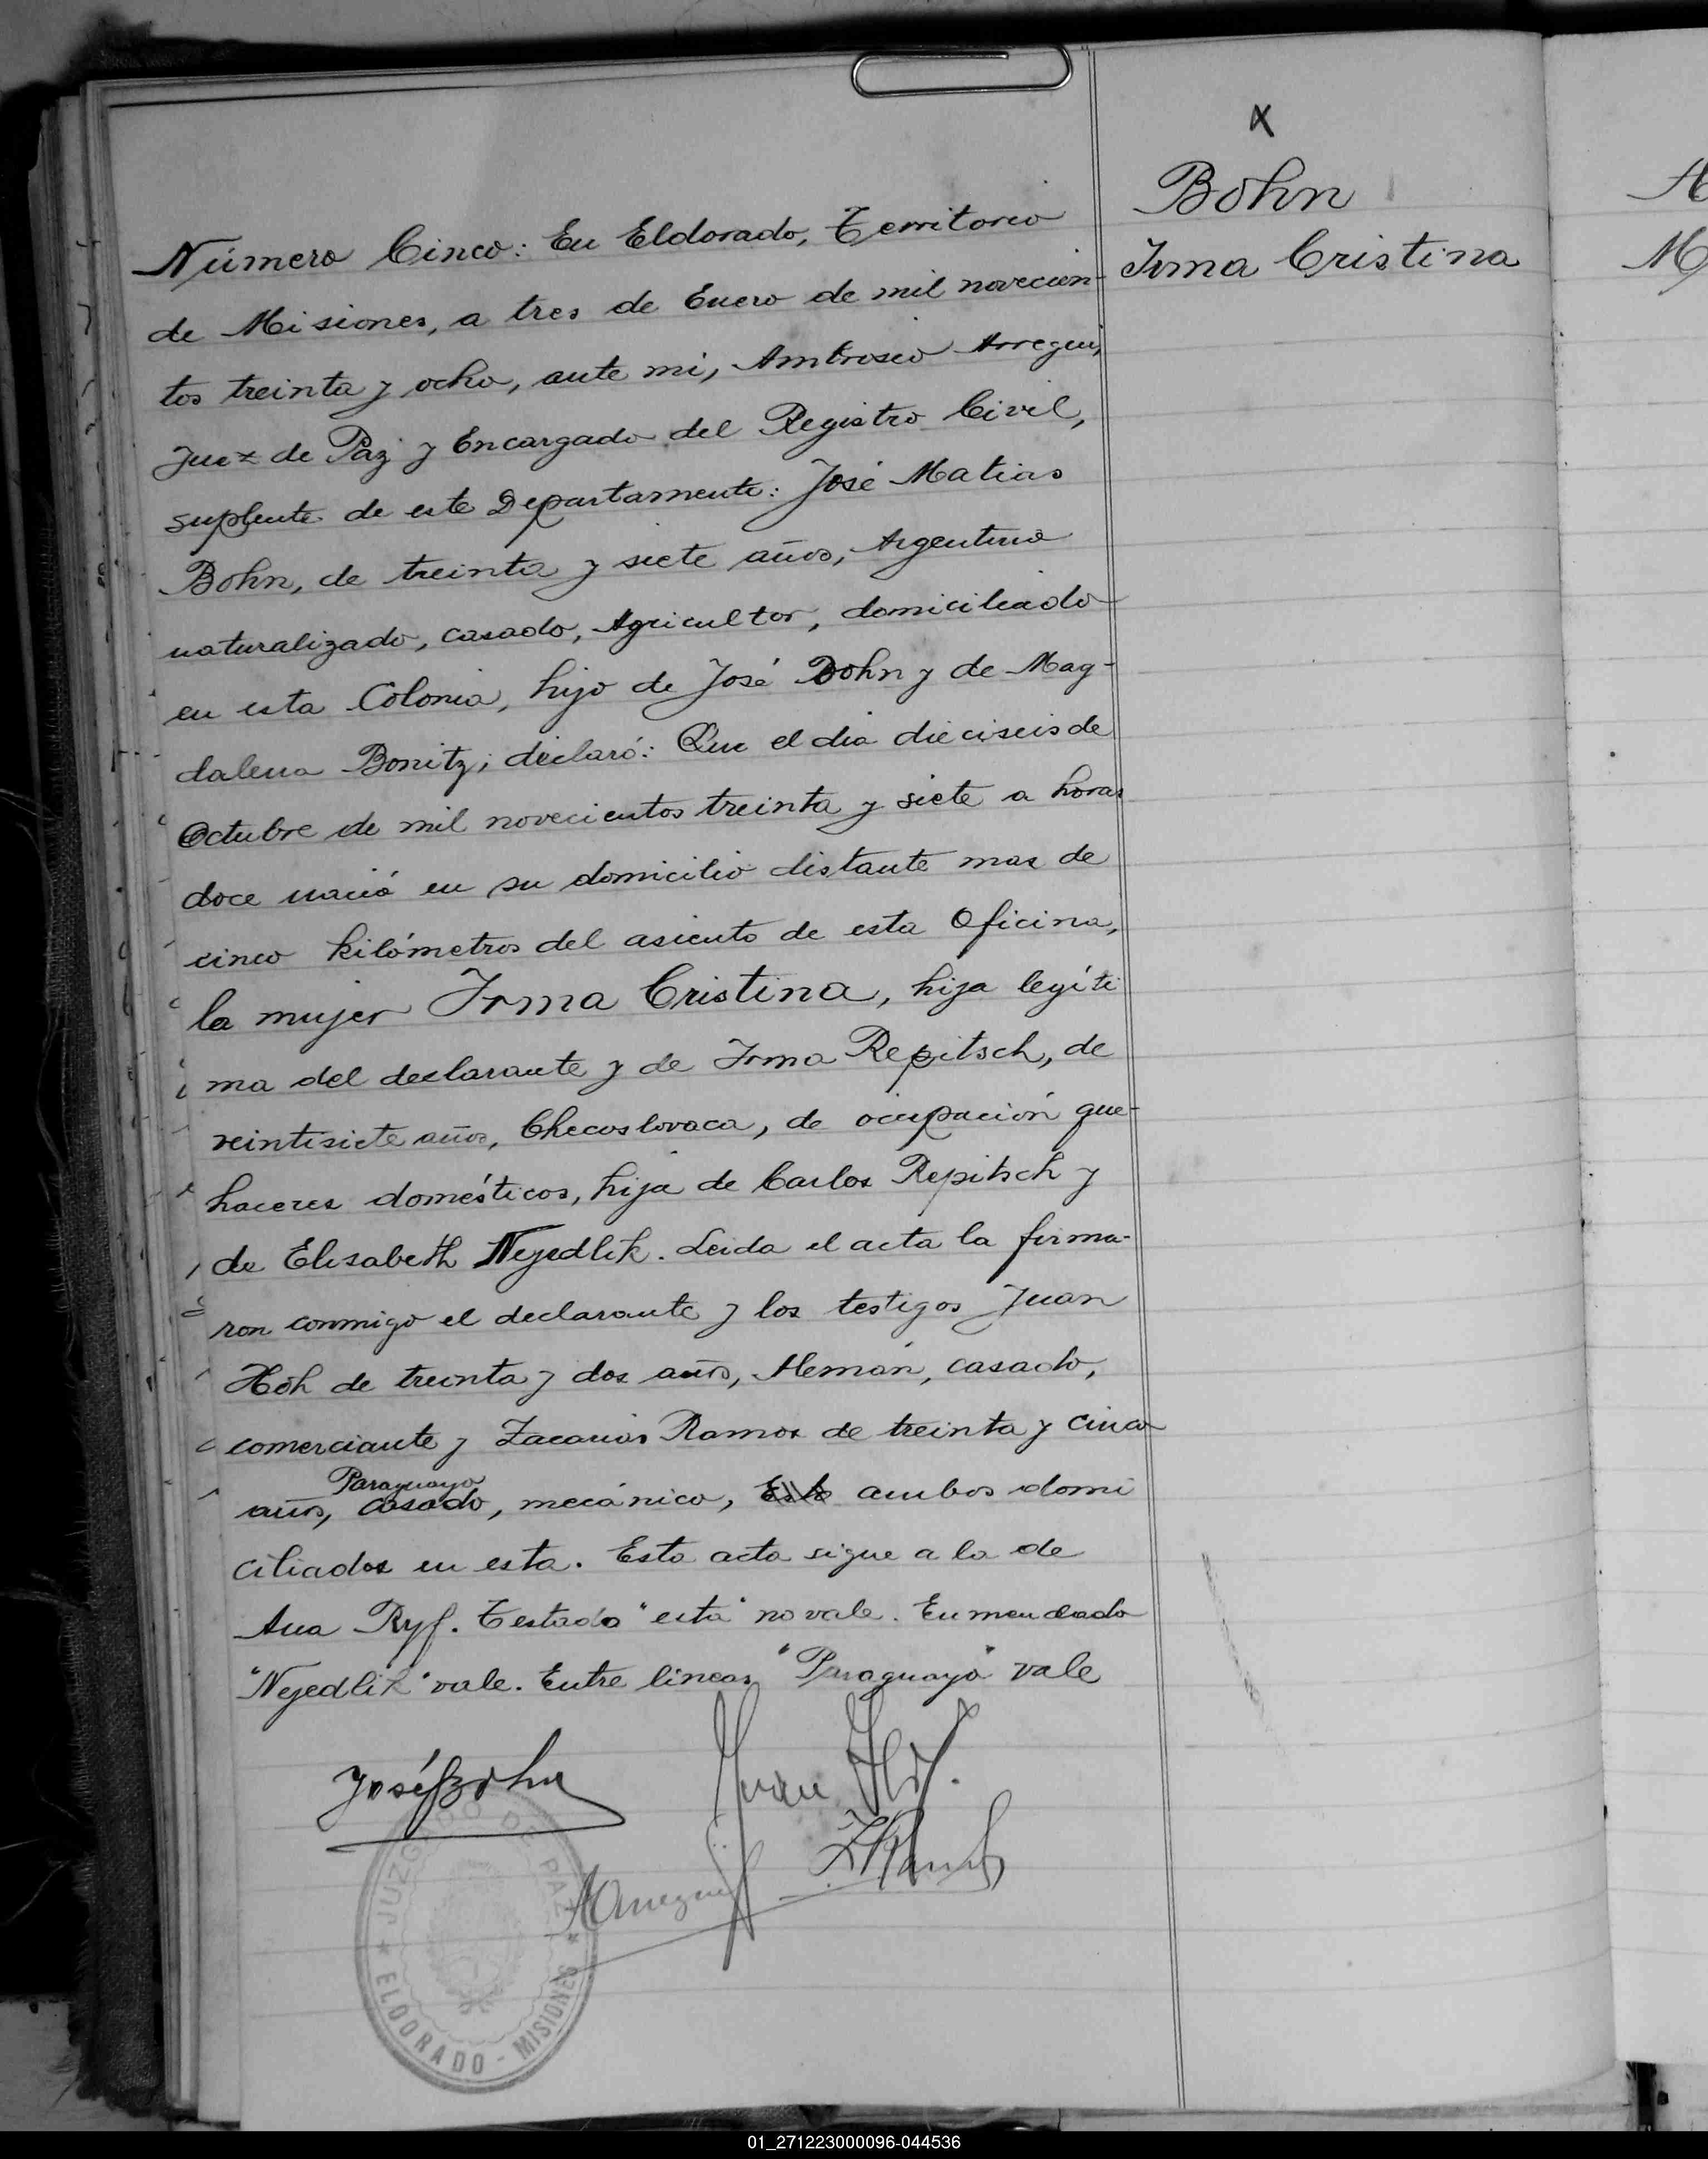 x
Bohn
Irma Cristina
Número Cinco: En Eldorado, Territorio
de Misiones, a tres de Enero de mil novecien-
tos treinta y ocho, ante mi, Ambrosio Arregui,
Juez de Paz y Encargado del Registro Civil,
suplente de este Departamento: José Matias
Bohn, de treinta y siete años, Argentino
naturalizado, casado, Agricultor, domiciliado
en esta Colonia, hijo de José Bohn y de Mag-
dalena Bonitz; declaró: Que el dia dieciseis de
Octubre de mil novecientos treinta y siete a horas
doce nació en su domicilio distante mas de
cinco kilómetros del asiento de esta Oficina,
la mujer Irma Cristina, hija legíti
ma del declarante y de Irma Repitsch, de
veintisiete años, Checoslovaca, de ocupación que-
haceres domésticos, hija de Carlos Repitsch y
de Elisabeth Nejedlik. Leida el acta la firma-
ron conmigo el declarante y los testigos Juan
Höh de treinta y dos años, Alemán, casado,
comerciante y Zacarias Ramos de treinta y cinco
Paraguayo
años, casado, mecánico, ambos domi
ciliados en esta. Esta acta sigue a la de
Ana Ryf. Testado "esta" no vale. Enmendado
"Nejedlik" vale. Entre lineas "Paraguayo" vale
José Bohn
Juan
JUZGADO DE PAZ
ELDORADO - MISIONES
01_271223000096-044536